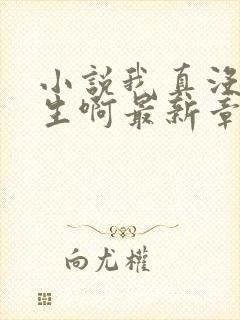 小說我真沒
生啊最新章
向尤權